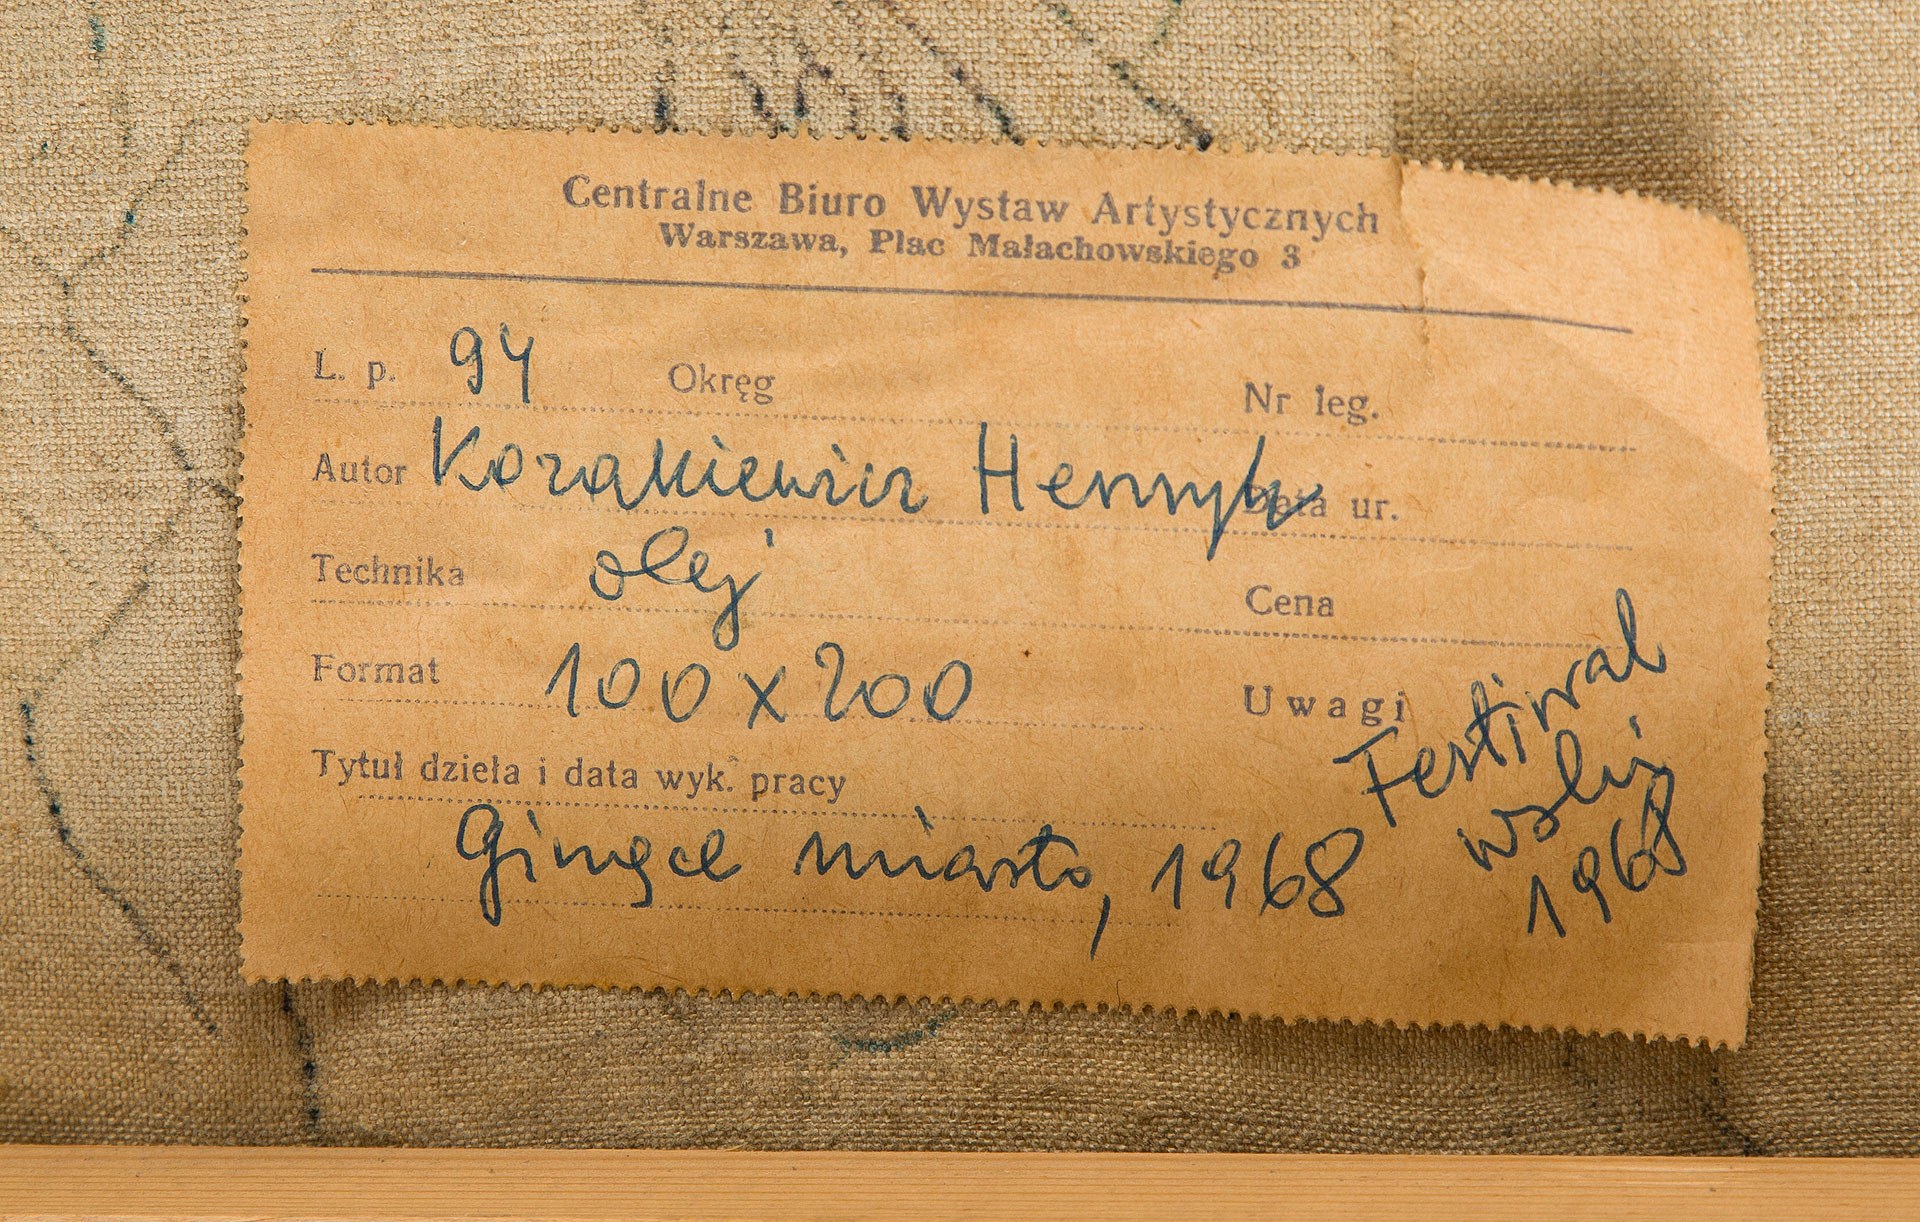 Centralne Biuro Wystaw Artystycznych
Warszawa, Plac Małachowskiego 3
L. p. 94 Okręg Nr leg.
Autor Kozakiewicz Henryk Data ur.
Technika olej Cena
Format 100 x 200 Uwagi
Festiwal
1968
Tytuł dzieła i data wyk. pracy
Ginące miasto, 1968